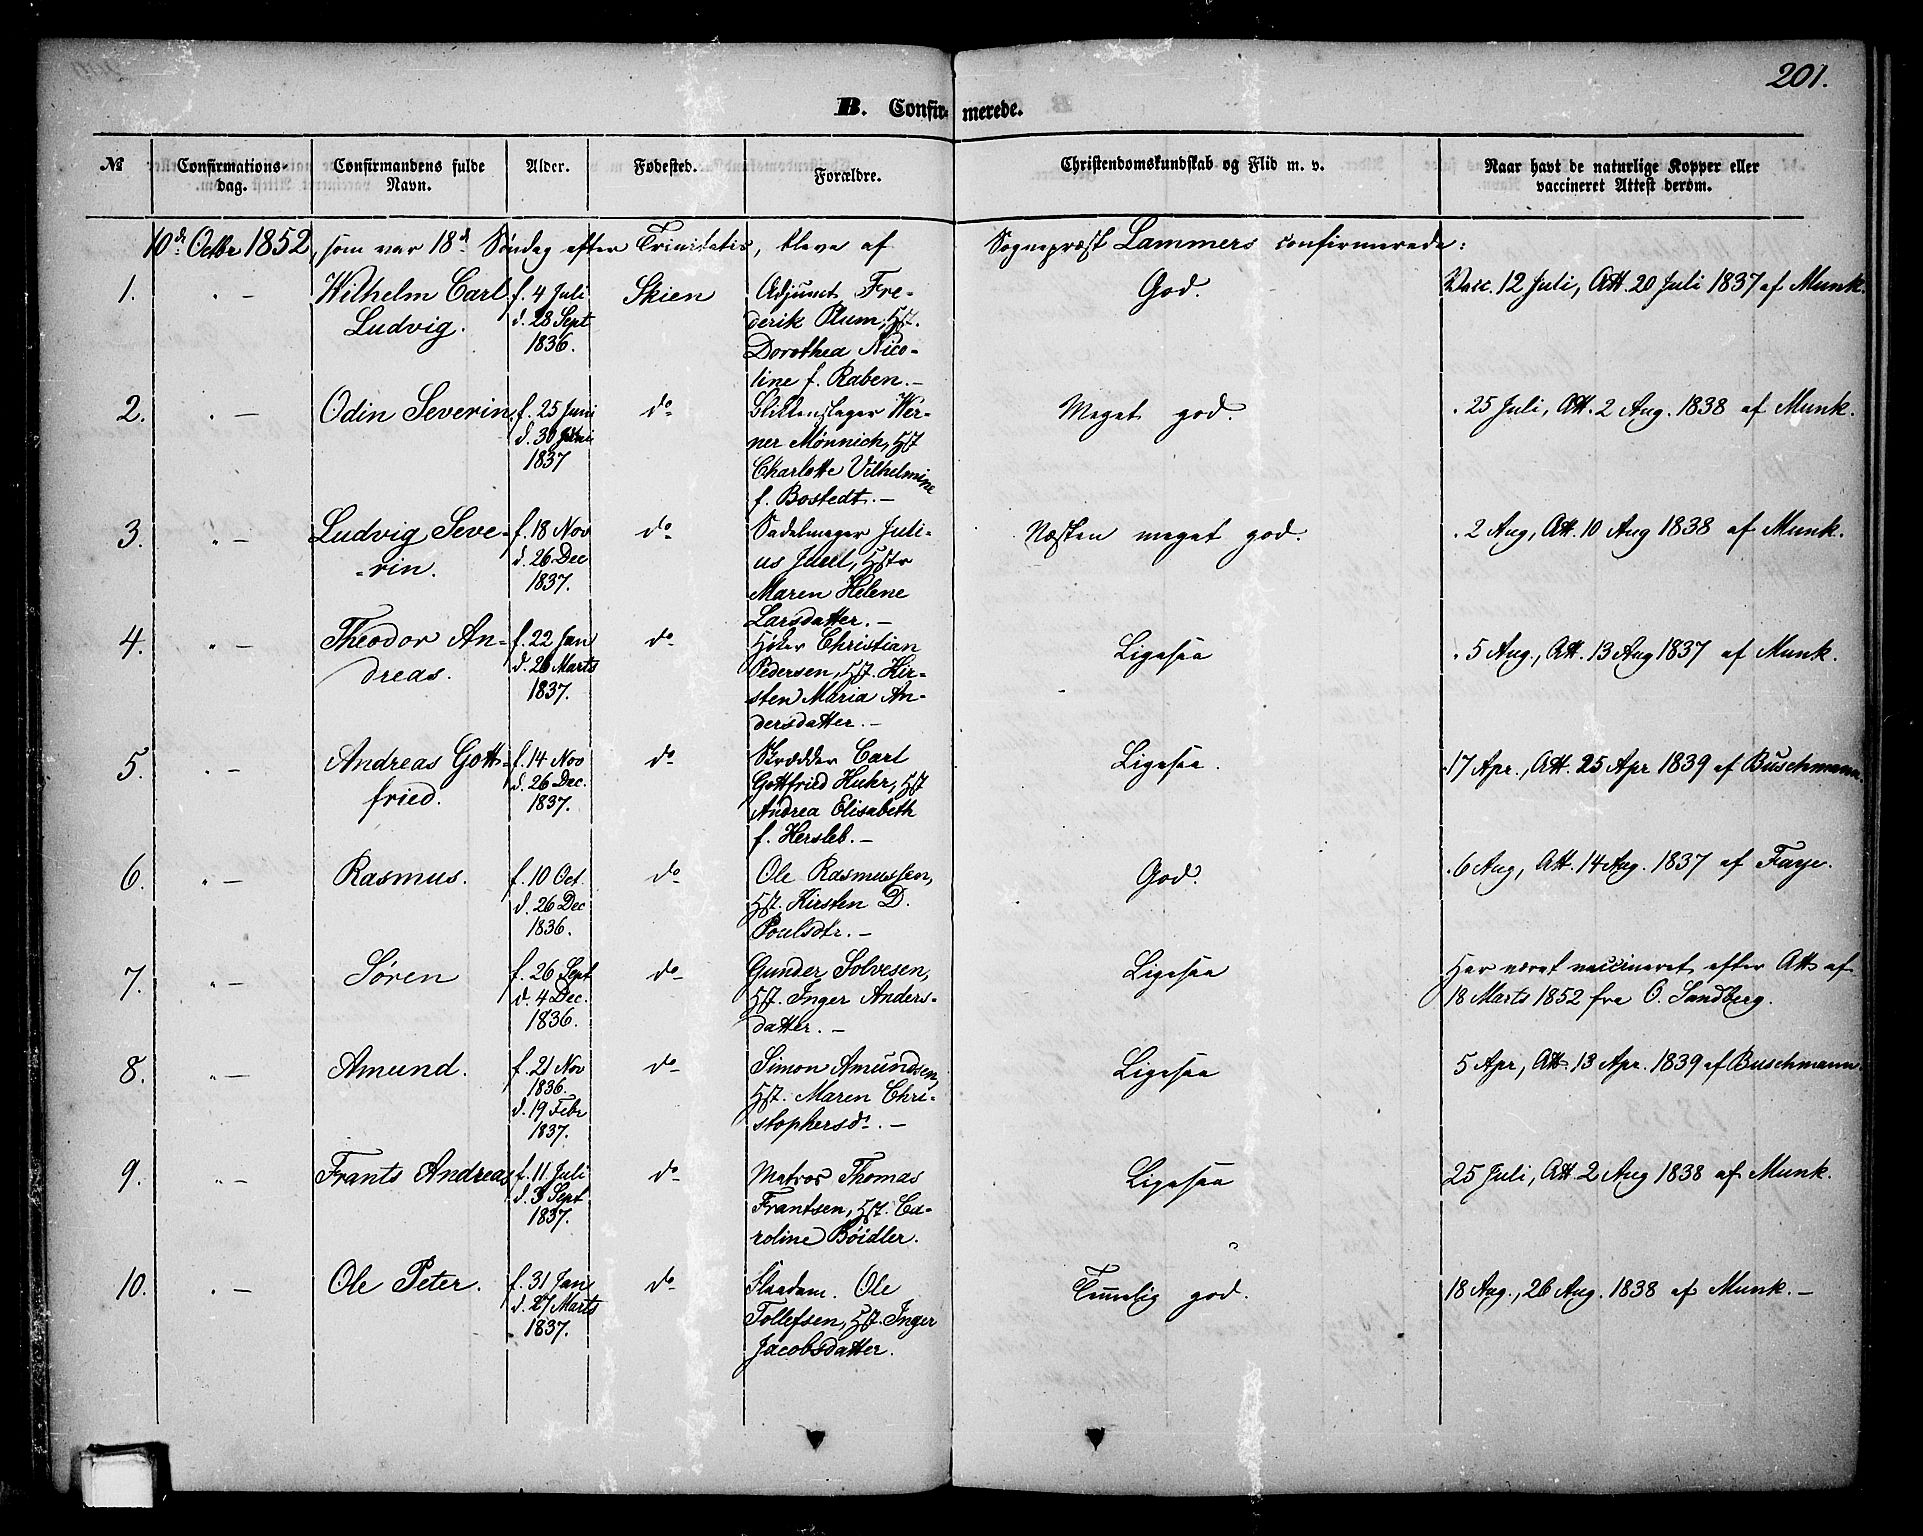 201.
B. Confirmerede.
№ Confirmations-dag. Confirmandens fulde Navn. Alder. Fødested. Forældre. Christendomskundskab og Flid m. v. Naar havt de naturlige Kopper eller vaccineret Attest derom.
10d. Octbr 1852, som var 18d Søndag efter Trinitatis, bleve af Sognepræst Lammers confirmerede:
1. " — Wilhelm Carl f. 4 Juli Skien Adjunct Fre- God. Vacc. 12 Juli, Att. 20 Juli 1837 af Munk.
Ludvig. d. 28 Sept derik Plum, Hst.
1836. Dorothea Nico-
line f. Raben. —
2. " — Odin Severin f. 25 Juni do Blikkenslager Wer- Meget god. " 25 Juli, Att. 2 Aug. 1838 af Munk.
d. 30 Juni ner Mønnich, Hst
1837 Charlotte Vilhelmine
f. Bostedt. —
3. " — Ludvig Seve- f. 18 Nov do Sadelmager Juli- Næsten meget god. " 2 Aug, Att. 10 Aug 1838 af Munk.
rin. d. 26 Dec us Juell, Hstr
1837. Maren Helene
Larsdatter. —
4. " — Theodor An- f. 22 Jan do Høker Christian Ligesaa " 5 Aug., Att. 13 Aug 1837 af Munk.
dreas. d. 26 Marts Pedersen, Hst. Kir-
1837. sten Maria An-
dersdatter. —
5. " — Andreas Gott- f. 14 Nov do Skrædder Carl Ligesaa. " 17 Apr., Att. 25 Apr 1839 af Buschmann.
fried. d. 26 Dec. Gottfried Huhr, Hst
1837. Andrea Elisabeth
f. Hersleb. —
6. " — Rasmus. f. 10 Oct. do Ole Rasmussen, God. " 6 Aug, Att. 14 Aug. 1837 af Faye.
d. 26 Dec Hst. Kirsten D.
1836. Poulsdtr. —
7. " — Søren f. 26 Sept do Gunder Solvesen, Ligesaa Har været vaccineret efter Att. af
d. 4 Dec. Hst. Inger Anders- 18 Marts 1852 fra O. Sandberg.
1836. datter. —
8. " — Amund. f. 21 Nov do Simon Amundsen, Ligesaa 5 Apr, Att. 13 Apr. 1839 af Buschmann.
1836. Hst. Maren Chri-
d. 19 Febr stophersd. —
1837.
9. " — Frants Andreas f. 11 Juli do Matros Thomas Ligesaa 25 Juli, Att. 2 Aug 1838 af Munk.
d. 3 Sept Frantsen, Hst. Ca-
1837. roline Bøidler.
10. " — Ole Peter. f. 31 Jan do Flaadm. Ole Temmelig god. 18 Aug., 26 Aug. 1838 af Munk. —
d. 27 Marts Tollefsen, Hst. Inger
1837. Jacobsdatter.